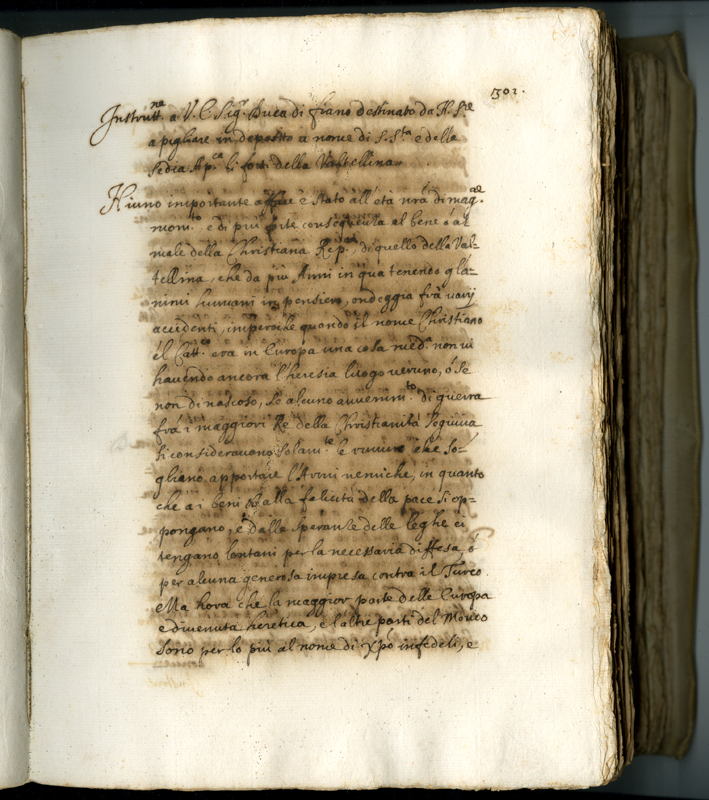 1301.
Instrutt.ne a V. E. Sig.r Duca di fiano destinato da N. S.re
a pigliare in deposito a nome di S. S.ta e della
Sedia Ap.ca li forti della Valtellina
Niuno importante affare è stato all'età nrã di mag.re
mom.to, e di più forte conseguenza al bene ó al
male della Christiana Rep.ca, di quello della Val-
tellina, che da più Anni in qua tenendo gl'a-
nimi humani in pensiero, ondeggia frà varij
accidenti, imperoche quando il nome Christiano
è'l Catt.co era in Europa una cosa med.a non vi
havendo ancora l'heresia luogo veruno, ó se
non di nascoso, se alcuno avvenim.to di guerra
frà i maggiori Re della Christianità seguiva
si consideravono solam.te le rovine che so-
gliano apportare l'Armi nemiche, in quanto
che a i beni alla felicità della pace si op-
pongano, e dalle speranze delle leghe ci
tengano lontani per la necessaria difesa, ó
per alcuna generosa impresa contra il Turco
Ma hora che la maggior parte delle Europa
e divenuta heretica, e l'altre parti del Mondo
sono per lo più al nome di Xpõ infedeli, e